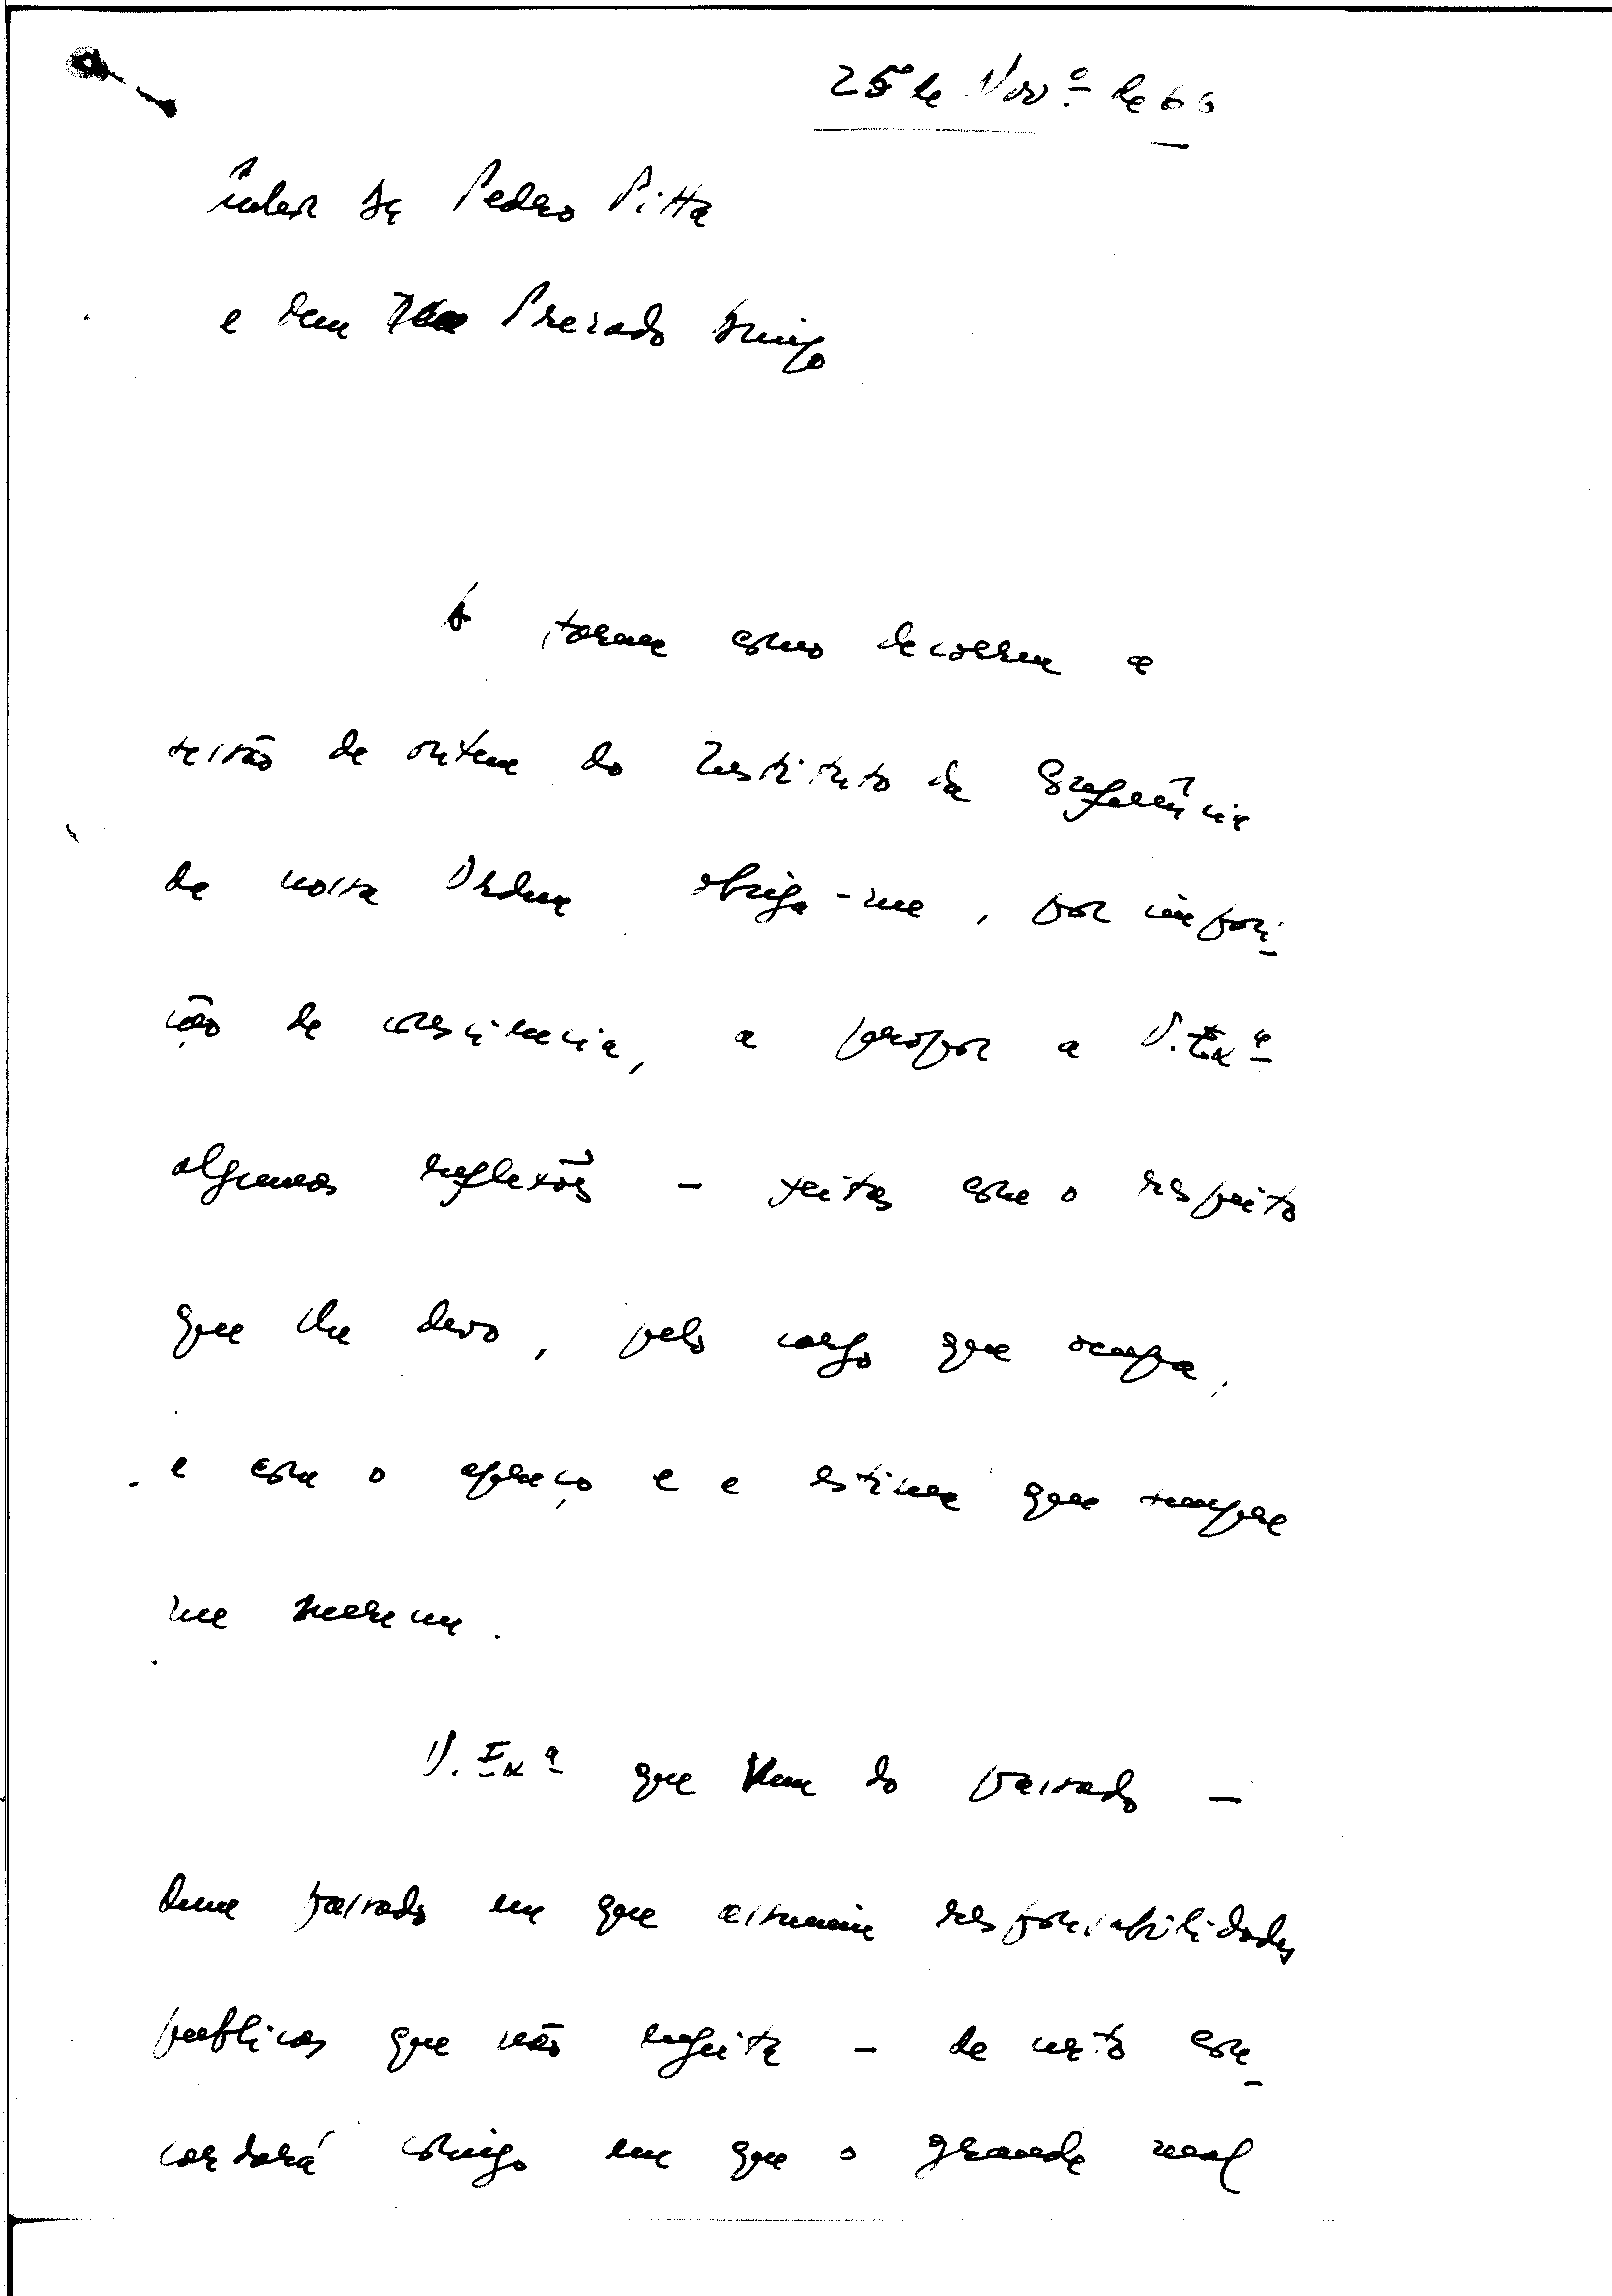 25 de Nov.º de 66
Senhor Dr. Pedro Pitta
e bem Prezado Amigo
A forma como decorreu a
sessão de ontem do Instituto da Conferência
da nossa Ordem obriga-me, por imposi-
ção de consciencia, a propor a V. Ex.ª
algumas reflexões - feitas com o respeito
que lhe devo, pelo cargo que ocupa,
e com o apreço e a estima que sempre
me mereceu.
V. Ex.ª que vem do passado -
dum passado em que assumiu responsabilidades
publicas que não regeita - de certo con-
cordará comigo em que o grande mal